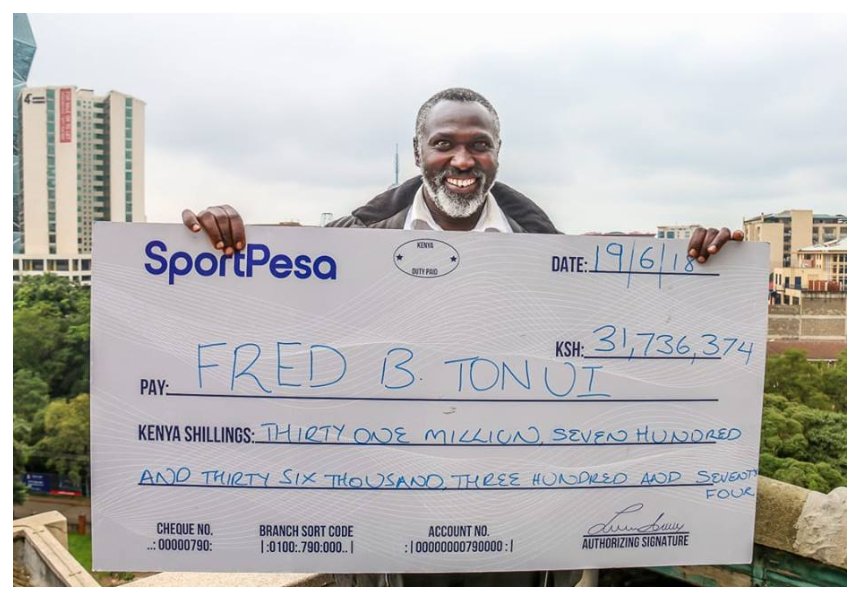 SportPesa
KENYA
DUTY PAID
DATE: 19/6/18
KSH: 31,736,374
PAY: FRED B. TONUI
KENYA SHILLINGS: THIRTY ONE MILLION, SEVEN HUNDRED
AND THIRTY SIX THOUSAND, THREE HUNDRED AND SEVENTY
FOUR
CHEQUE NO.
..: 00000790:
BRANCH SORT CODE
|:0100:.790:000.. |
ACCOUNT NO.
: | 00000000790000 : |
AUTHORIZING SIGNATURE